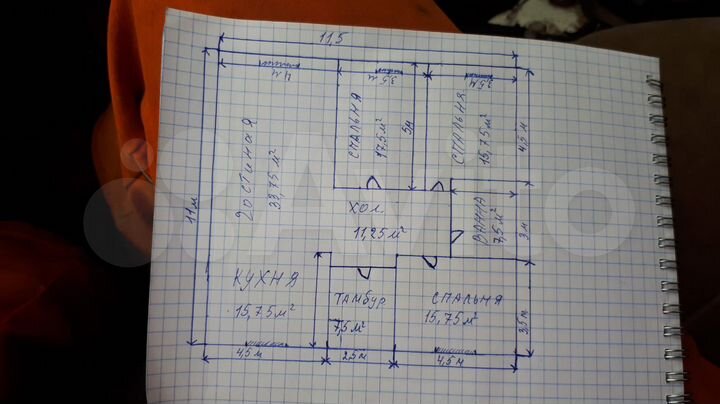 11,5
4м
3,5м
3,5м
11м
Гостиная
33,75 м²
СПАЛЬНЯ
17,5 м²
5м
СПАЛЬНЯ
15,75 м²
4,5 м
ХОЛ.
11,25 м²
ВАННА
7,5 м²
3м
КУХНЯ
15,75 м²
ТАМБУР
7,5 м²
СПАЛЬНЯ
15,75 м²
3,5м
4,5м
2,5м
4,5м
Avito